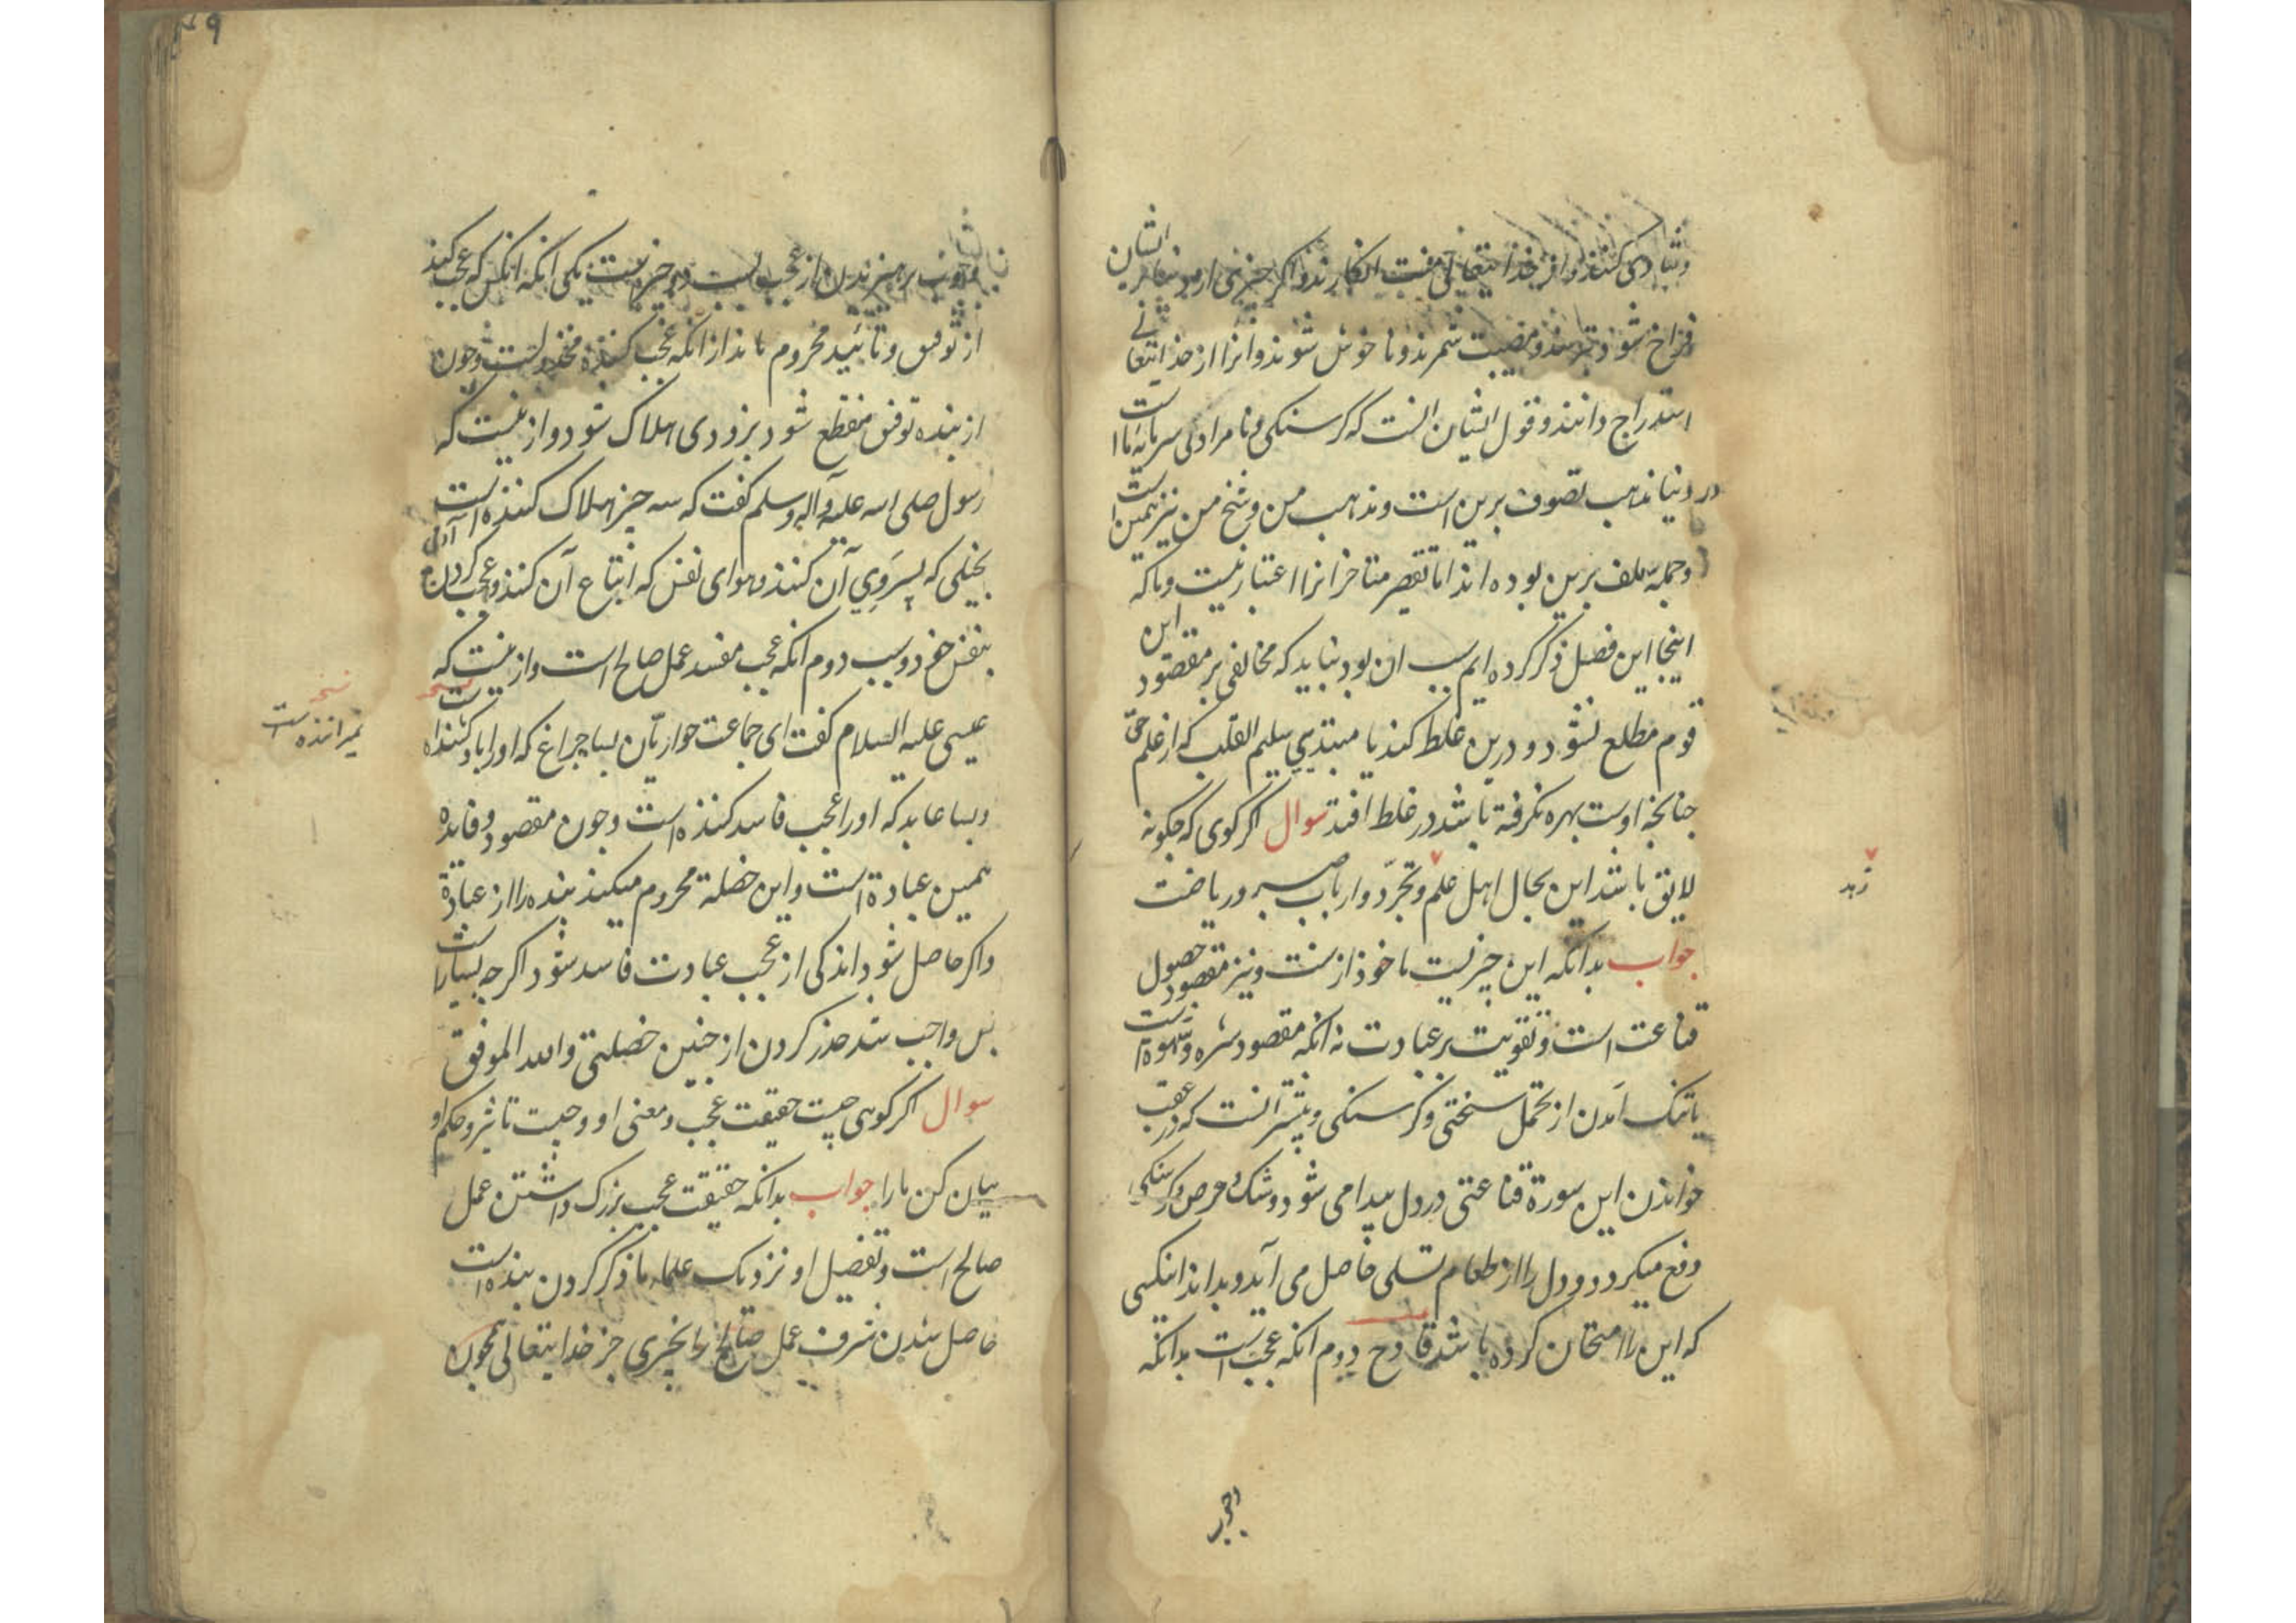 و شادی کنند و از خدایتعالی منت انکارند و اکر چیزی از مور دنیا بریشان
فراخ شود بترسند و مصیبت شمرند و نا خوش شوند و آنرا از خدایتعالی
استدراج دانند و قول ایشان انست که کرسنکی و نامرادی سرمایه ما است
در دنیا مذهب تصوف برین است و مذهب من و شیخ من نیز همین است
و جمله سلف برین بوده اند اما تقصیر متاخرانرا اعتبار نیست و ما که
اینجا این فصل ذکر کرده ایم سبب آن بود نباید که مخالفی بر مقصود این
قوم مطلع نشود و درین غلط کند یا مبتدیی سلیم القلب که از علم حق
چنانچه اوست بهره نکرفته باشد در غلط افتد سوال اکر کوی که چکونه
لایق باشد این بحال اهل علم و تجرّد و ارباب صبر و ریاضت
زهد
جواب بدانکه این چیزیست ماخوذ از سنت و نیز مقصود حصول
قناعت است و تقویت بر عبادت نه انکه مقصود شره و شهوة است
یا تنک آمدن از تحمل سختی و کرسنکی و بیشتر انست که در عقب
خواندن این سورة قناعتی در دل پیدا می شود و شک و حرص و کرسنکی
دفع میکردد و دل را از طعام تسلی حاصل می آید و بداند انکسی
که این را امتحان کرده باشد قادح دوم انکه عجب است بدانکه
وجوب
وجوب پرهیزیدن از عجب بسبب دو چیز است یکی انکه انکس که عجب کند
از توفیق و تائید محروم ماند از انکه عجب کننده مخذول است و چون
از بنده توفیق منقطع شود بزودی هلاک شود و از ینست که
رسول صلی الله علیه و آله و سلم کفت که سه چیز هلاک کننده است آدمی
بخیلی که پسروی آن کنند و هوای نفس که اتباع آن کنند و عجب کردن
بنفس خود و سبب دوم انکه عجب مفسد عمل صالح است و از ینست که
عیسی علیه السلام کفت ای جماعت حواریّان بسا چراغ که او را باد کشنده است
نسخه
میراننده است
و بسا عابد که او را عجب فاسد کننده است و چون مقصود و فایده
همین عبادة است و این خصلة محروم میکند بنده را از عبادة
و اکر حاصل شود اندکی از عجب عبادت فاسد شود اکر چه بسیار است
پس واجب شد حذر کردن از چنین خصلتی و الله الموفق
سوال اکر کوهی چیست حقیقت عجب و معنی او و چیست تاثیر و حکم او
بیان کن ما را جواب بدانکه حقیقت عجب بزرک داشتن عمل
صالح است و تفصیل او نزدیک علماء ما ذکر کردن بنده است
حاصل شدن شرف عمل صالح را بچیزی جز خدایتعالی همچون